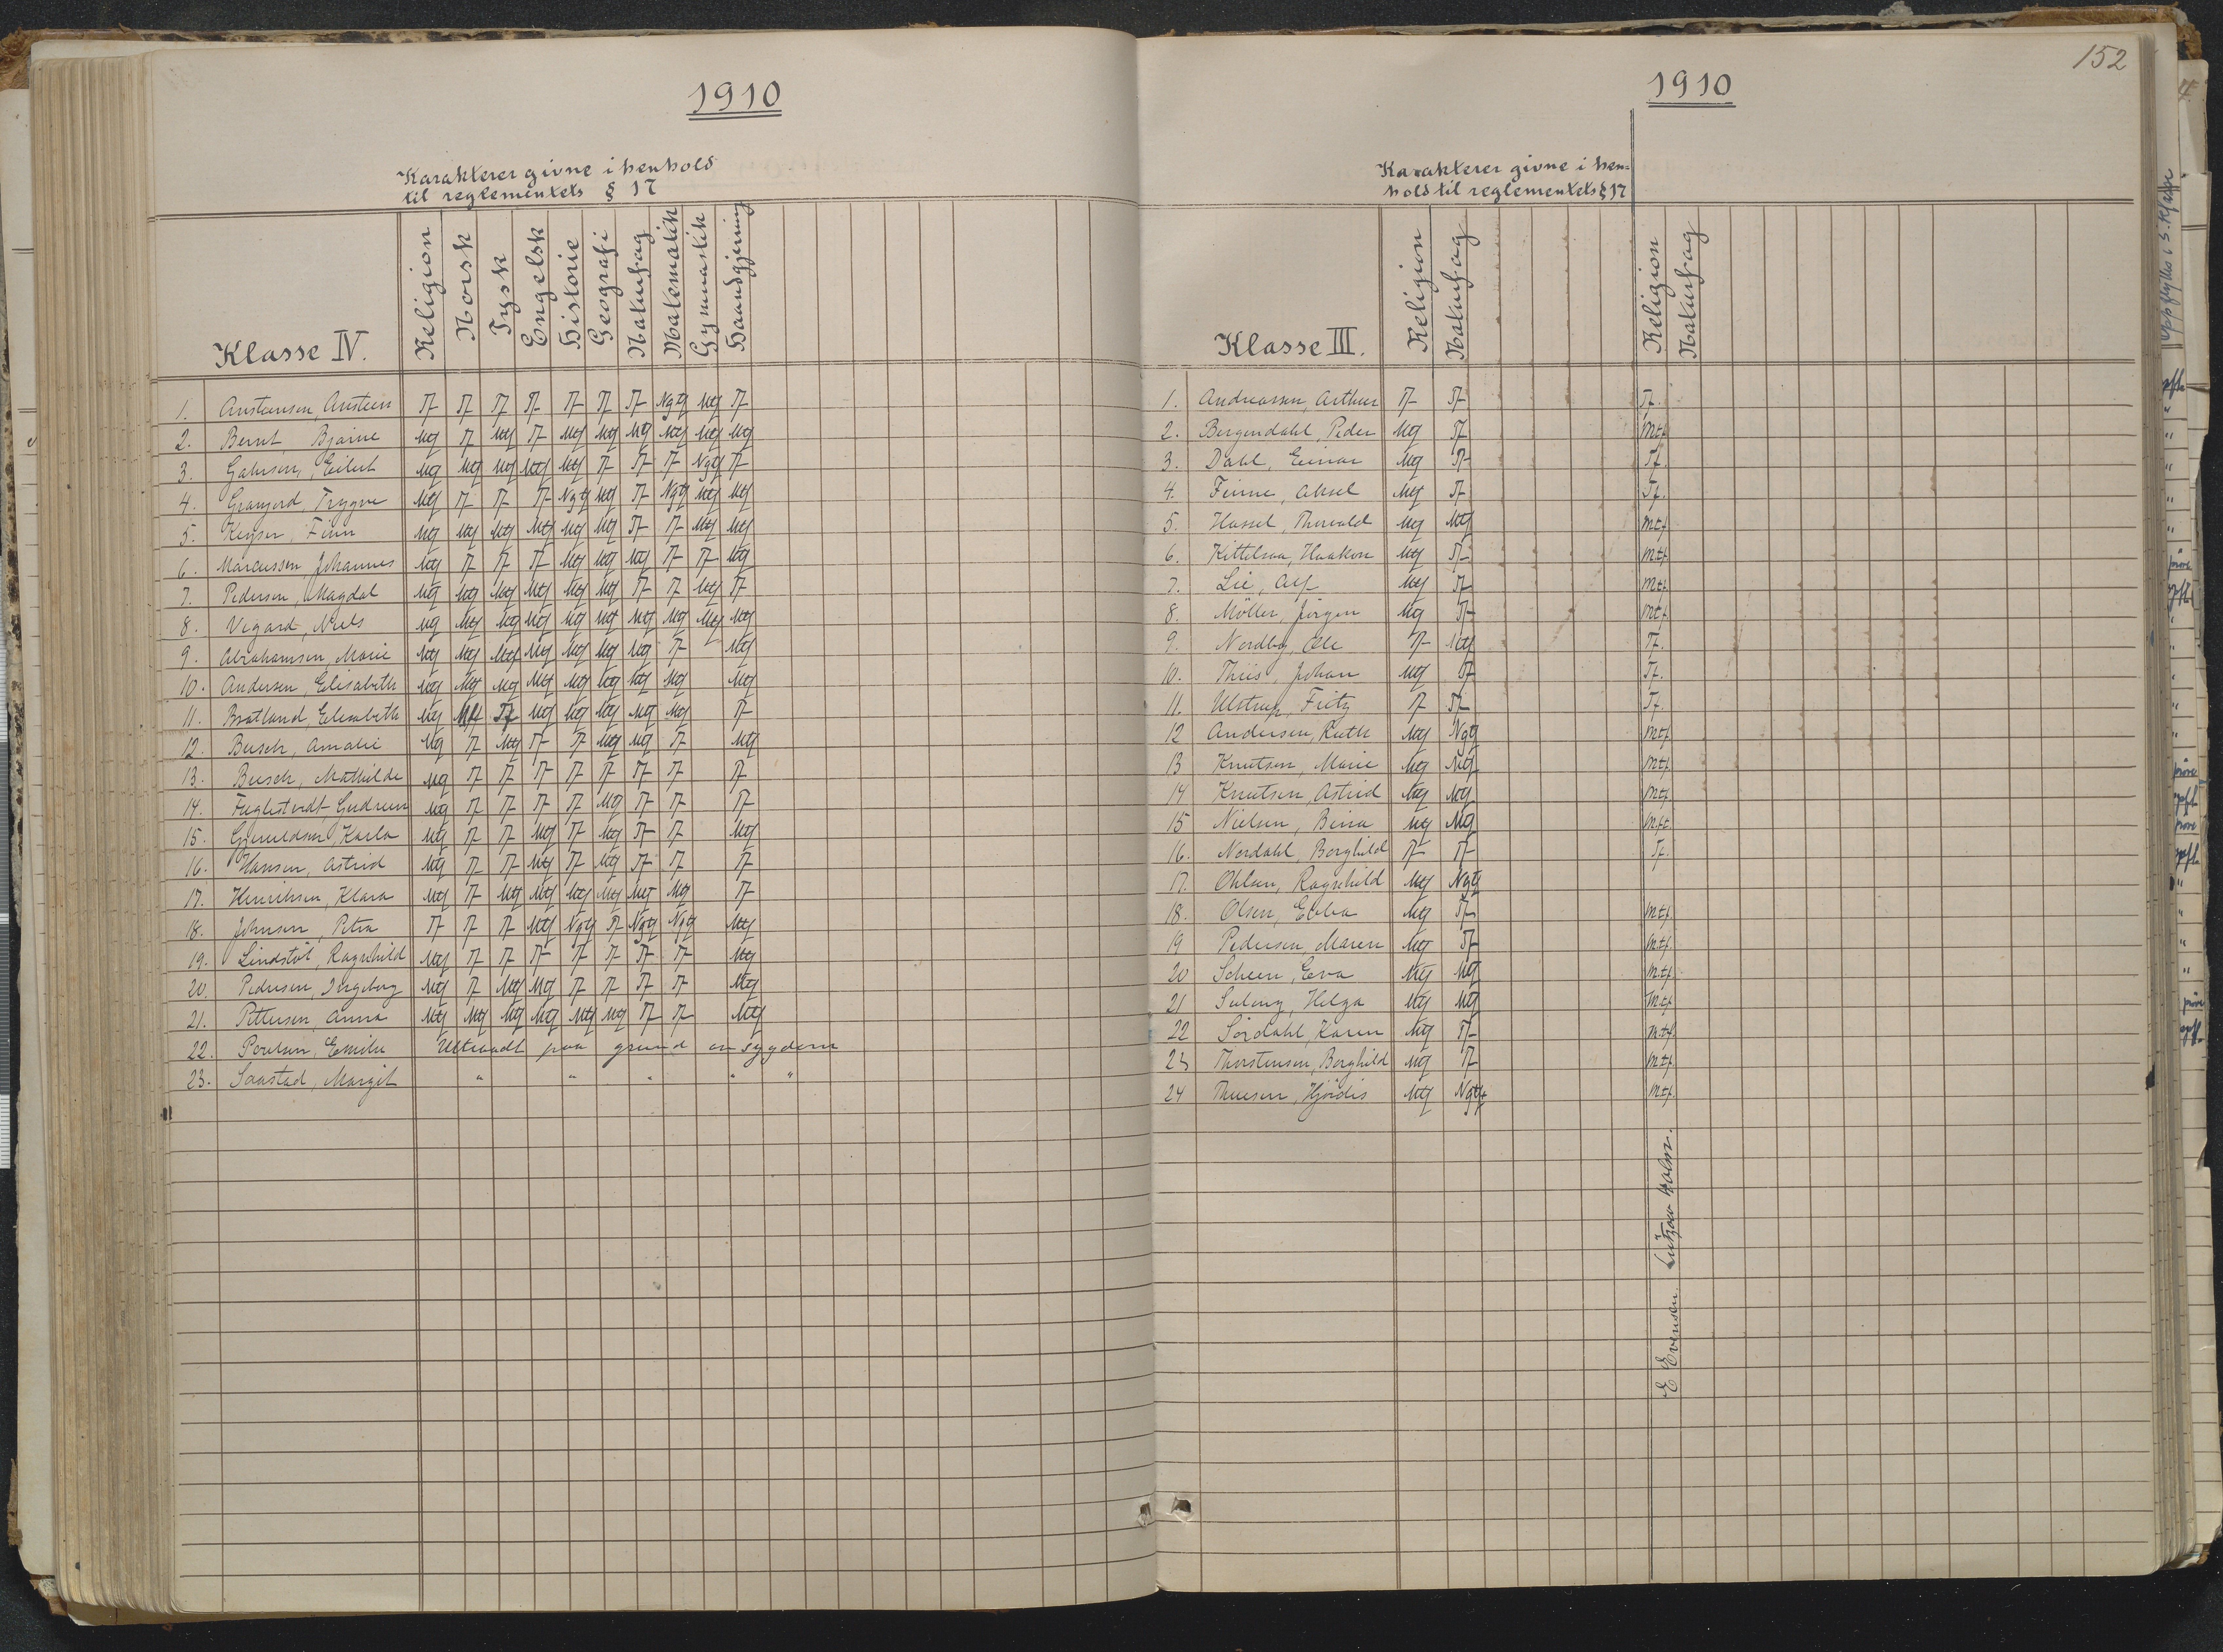 1910
Karakterer givne i henhold
til reglementets § 17
Klasse IV. Religion Norsk Tysk Engelsk Historie Geografi Naturfag Matematik Gymnastik Haandgjerning
1. Austensen, Austein Tf Tf Tf Tf Tf Tf Tf Ngtf Mtf Tf
2. Bernt, Bjarne Mtf Tf Mtf Tf Mtf Mtf Mtf Mtf Mtf Mtf
3. Eilert Mtf Mtf Mtf Mtf Mtf Tf Tf Tf Ngtf Tf
4. Trygve Mtf Tf Tf Tf Ngtf Mtf Tf Ngtf Mtf Mtf
5. Keyser, Finn Mtf Mtf Mtf Mtf Mtf Mtf Tf Tf Mtf Mtf
6. Marcussen, Johannes Mtf Tf Tf Tf Mtf Mtf Mtf Tf Tf Mtf
7. Pedersen, Magdal Mtf Mtf Mtf Mtf Mtf Mtf Tf Tf Mtf Tf
8. Vegard, Niels Mtf Mtf Mtf Mtf Mtf Mtf Mtf Mtf Mtf Mtf
9. Abrahamsen, Marie Mtf Mtf Mtf Mtf Mtf Mtf Mtf Tf Mtf
10. Andersen, Elisabeth Mtf Mtf Mtf Mtf Mtf Mtf Mtf Mtf Mtf
11. Bratland, Elisabeth Mtf Mtf Tf Mtf Mtf Mtf Mtf Mtf Tf
12. Busch, Amalie Mtf Tf Mtf Tf Tf Mtf Mtf Tf Mtf
13. Busch, Mathilde Mtf Tf Tf Tf Tf Tf Tf Tf Tf
14. Fuglestvedt, Gudrun Mtf Tf Tf Tf Tf Mtf Tf Tf Tf
15. Gjeruldsen, Karla Mtf Tf Tf Mtf Tf Mtf Tf Tf Mtf
16. Hansen, Astrid Mtf Tf Tf Mtf Tf Mtf Tf Tf Tf
17. Henriksen, Klara Mtf Tf Mtf Mtf Mtf Mtf Mtf Mtf Tf
18. Johnsen, Petra Tf Tf Tf Mtf Ngtf Tf Ngtf Ngtf Mtf
19. Lindstöl, Ragnhild Mtf Tf Tf Tf Tf Tf Tf Tf Mtf
20. Pedersen, Ingeborg Mtf Tf Mtf Mtf Tf Tf Tf Tf Mtf
21. Pettersen, Anna Mtf Mtf Mtf Mtf Mtf Mtf Tf Tf Mtf
22. Emilie Uttraadt paa grund av sygdom
23. Saastad, Margit " " " " "
152
1910
Karakterer givne i hen-
hold til reglementets § 17
Klasse III. Religion Naturfag Religion Naturfag
1. Andreassen, Arthur Tf Tf Tf.
2. Bergendahl, Peder Mtf Tf Mtf
3. Dahl, Einar Mtf Tf Tf.
4. Finne, Aksel Mtf Tf Tf.
5. Hassel, Thorvald Mtf Mtf Mtf
6. Kittelsaa, Haakon Mtf Tf Mtf.
7. Lie, Alf Mtf Tf Mtf
8. Möller, Jörgen Mtf Tf Mtf
9. Nordbø, Ole Tf Mtf Tf.
10. Thiis, Johan Mtf Tf Tf.
11. Ulstrup, Fritz Tf Tf Tf.
12 Andersen, Ruth Mtf Ngtf Mtf
13 Knutsen, Marie Mtf Mtf Mtf.
14 Knutsen, Astrid Mtf Mtf Mtf
15 Nielsen, Beina Mtf Mtf Mtf.
16. Nordahl, Borghild Tf Tf Tf.
17. Ohlsen, Ragnhild Mtf Ngtf
18. Olsen, Ebba Mtf Tf Mtf
19 Pedersen, Maren Mtf Tf Mtf.
20 Scheen, Eva Mtf Mtf Mtf.
21 Helga Mtf Mtf Mtf
22 Sördahl, Karen Mtf Tf Mtf.
23 Thorstensen, Borghild Mtf Tf Mtf.
24 Thuesen, Hjördis Mtf Ngtf Mtf.
E Evensen Lützow Holm.